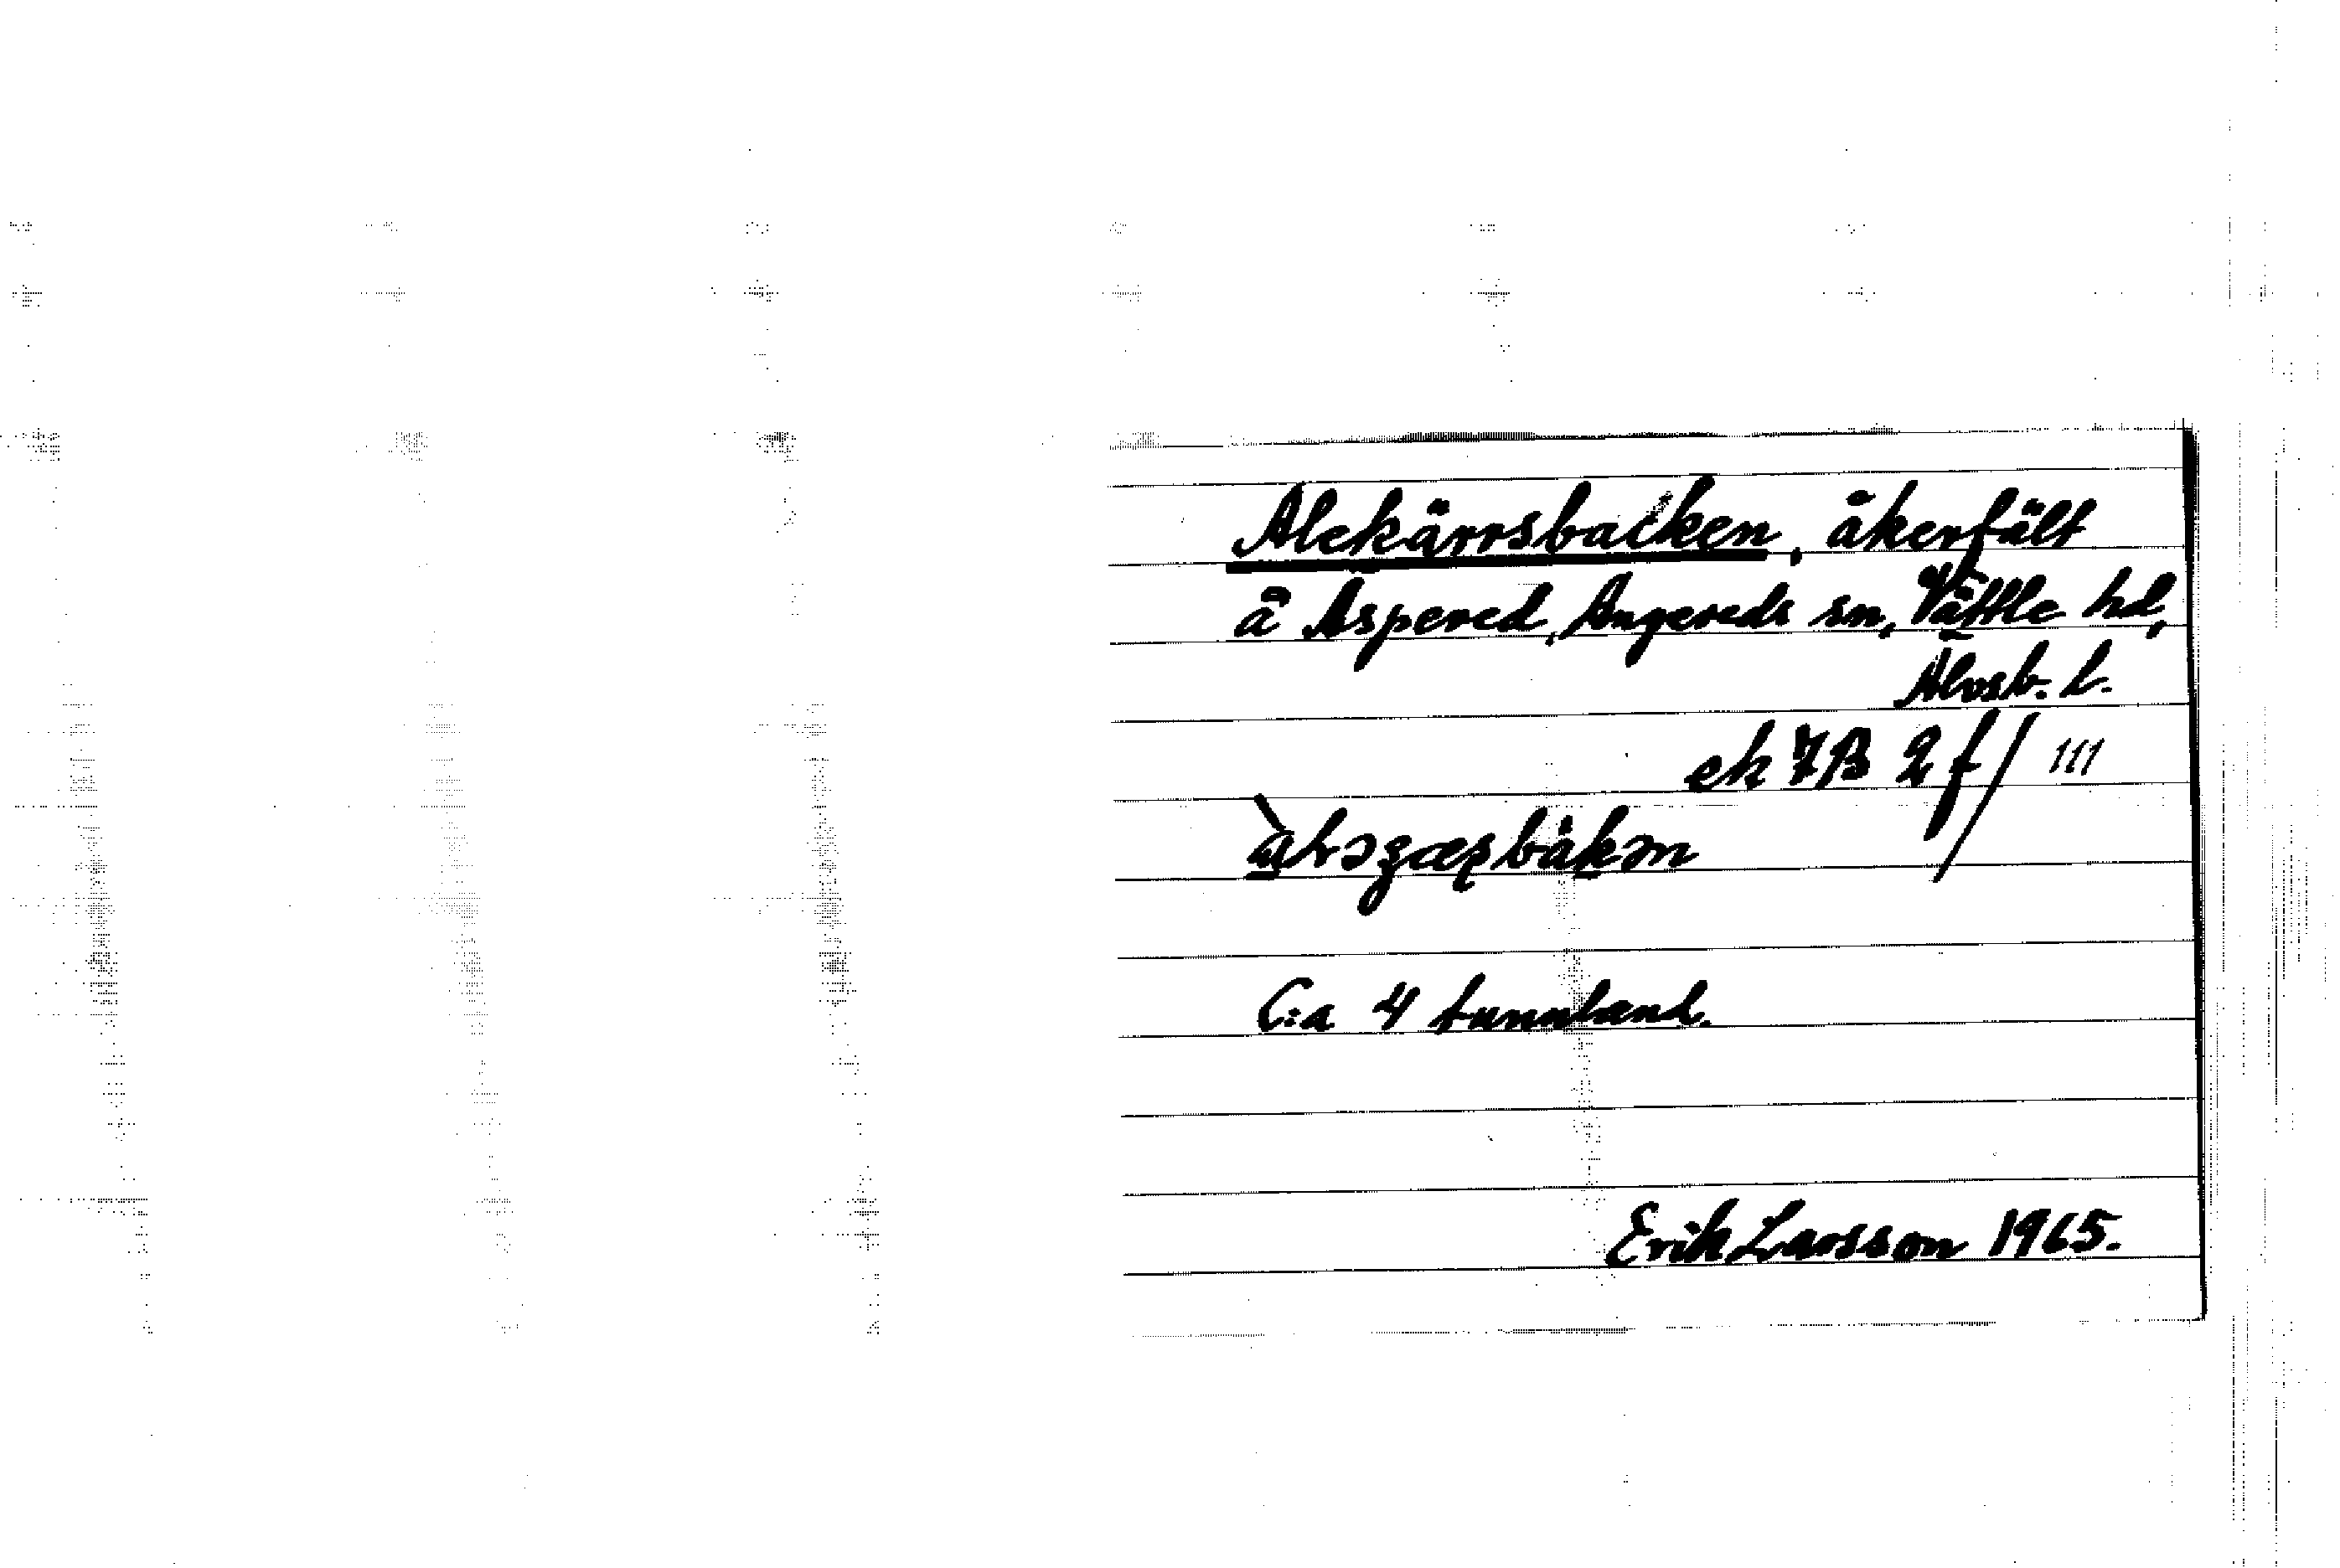 Alekärrsbacken, åkerfält
å Aspered, Angereds sn, Vättle hd,
Älvsb. l.
ek 7B 2 f / 111
C:a 4 tunnland.
Erik Larsson 1965.